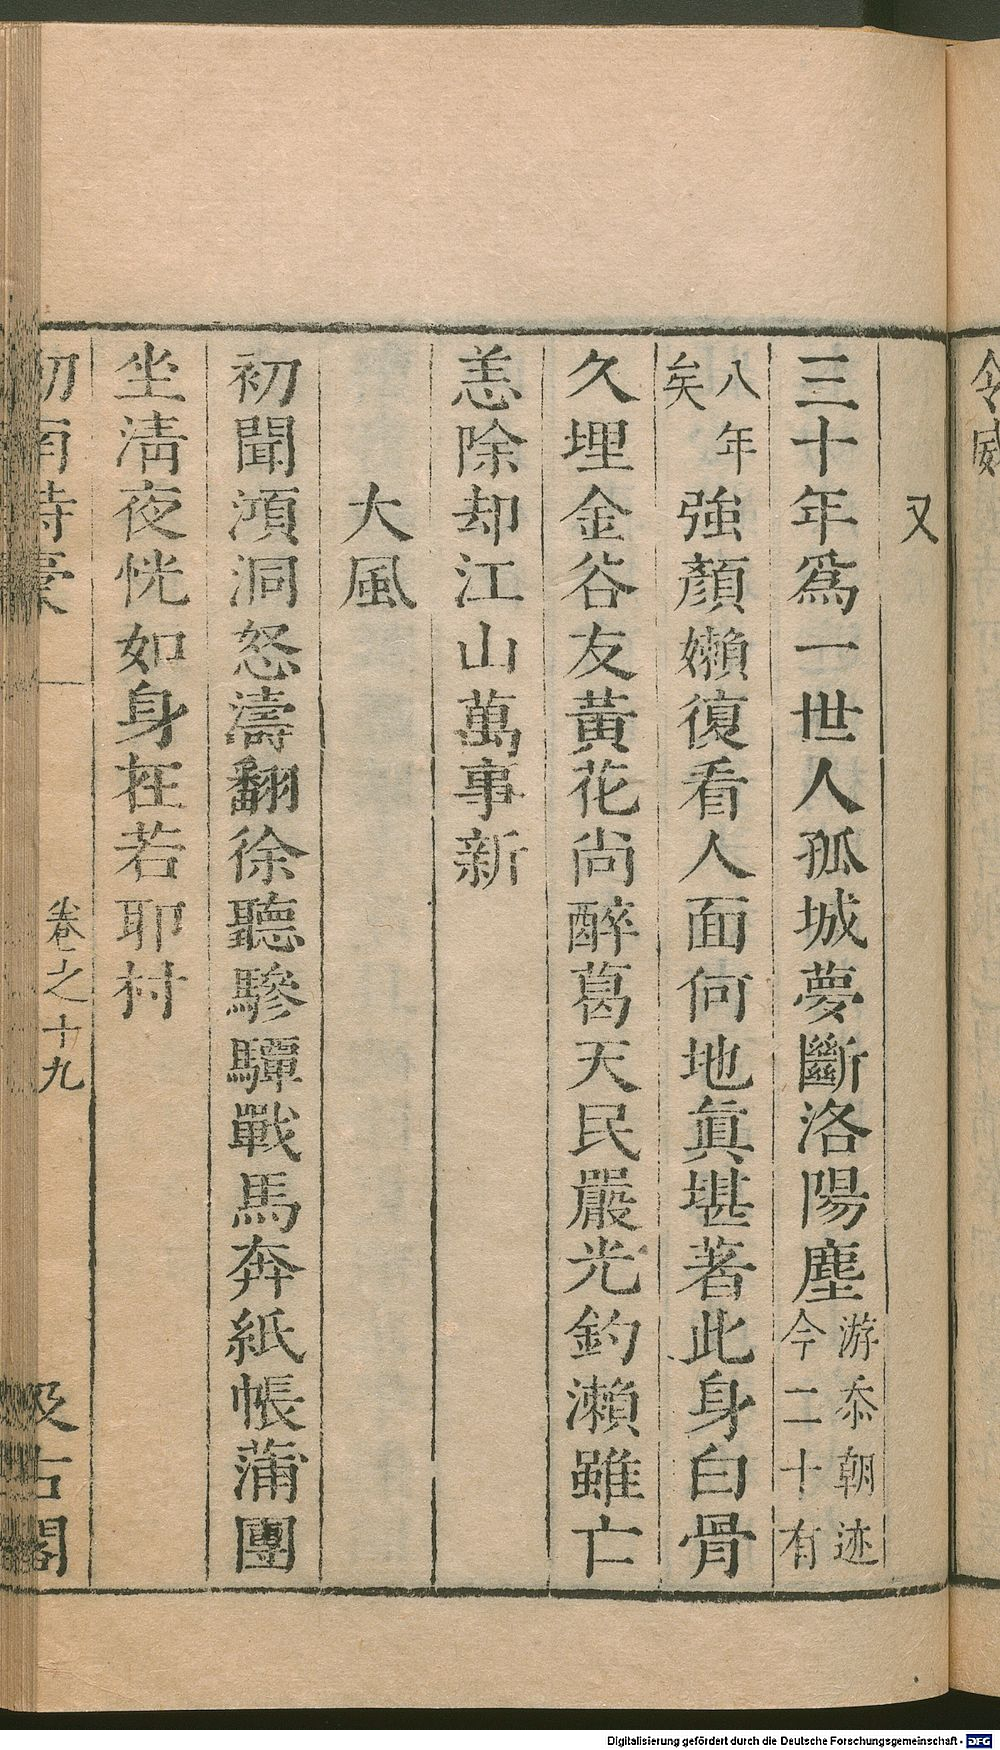 令威
又
三十年爲一世人孤城夢斷洛陽塵游忝朝迹今二十有
八年矣強顏嬾復看人面何地眞堪著此身白骨
久埋金谷友黃花尚醉葛天民嚴光釣瀨雖亡
恙除却江山萬事新
大風
初聞澒洞怒濤翻徐聽驂驔戰馬奔紙帳蒲團
坐淸夜恍如身在若耶村
劒南詩稾 卷之十九 汲古閣
Digitalisierung gefördert durch die Deutsche Forschungsgemeinschaft - DFG